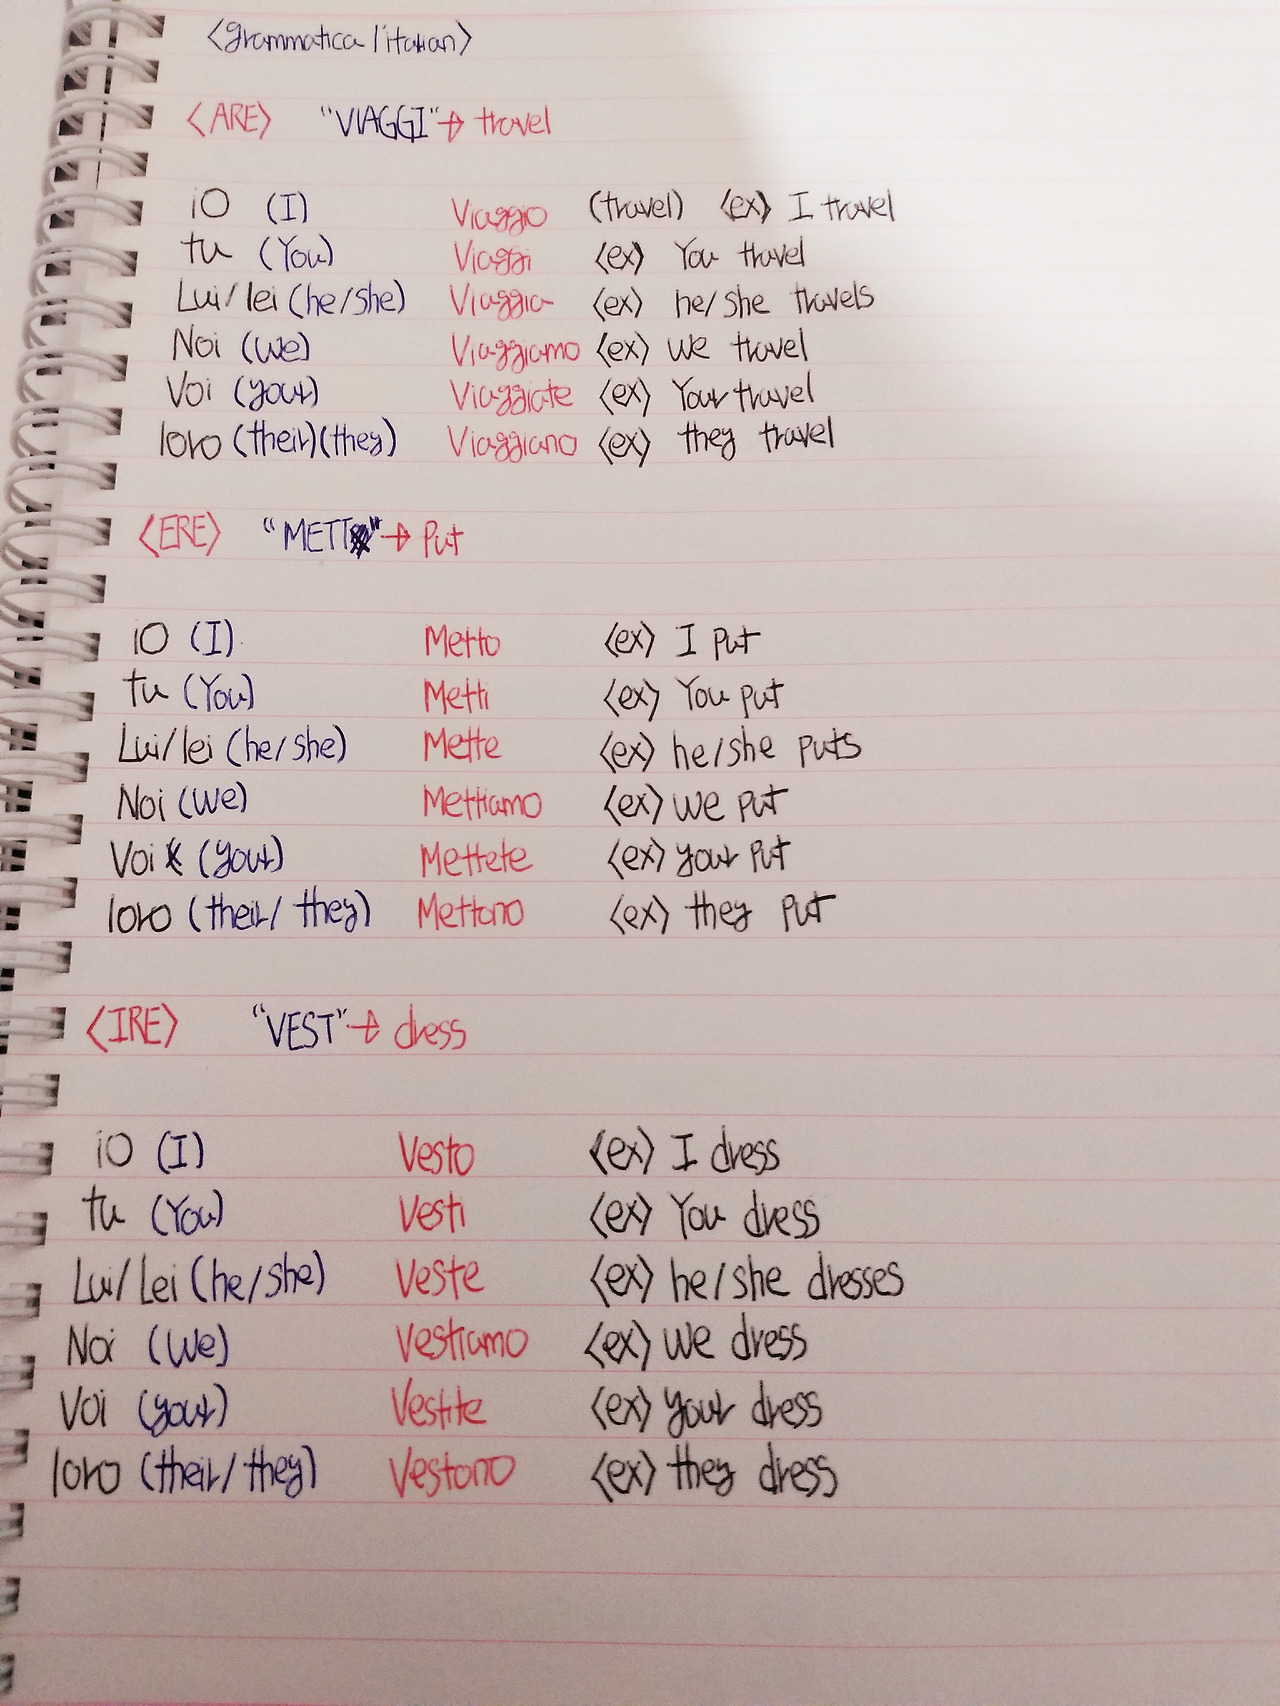 <grammatica / italian>
<ARE> "VIAGGI" → travel
io (I) Viaggio (travel) <ex> I travel
tu (You) Viaggi <ex> You travel
Lui/lei (he/she) Viaggia <ex> he/she travels
Noi (we) Viaggiamo <ex> we travel
Voi (your) Viaggiate <ex> Your travel
loro (their)(they) Viaggiano <ex> they travel
<ERE> "METT" → Put
io (I) Metto <ex> I put
tu (You) Metti <ex> You put
Lui/lei (he/she) Mette <ex> he/she puts
Noi (we) Mettiamo <ex> we put
Voi (your) Mettete <ex> your put
loro (their/they) Mettono <ex> they put
<IRE> "VEST" → dress
io (I) Vesto <ex> I dress
tu (You) Vesti <ex> You dress
Lui/Lei (he/she) Veste <ex> he/she dresses
Noi (we) Vestiamo <ex> we dress
Voi (your) Vestite <ex> your dress
loro (their/they) Vestono <ex> they dress